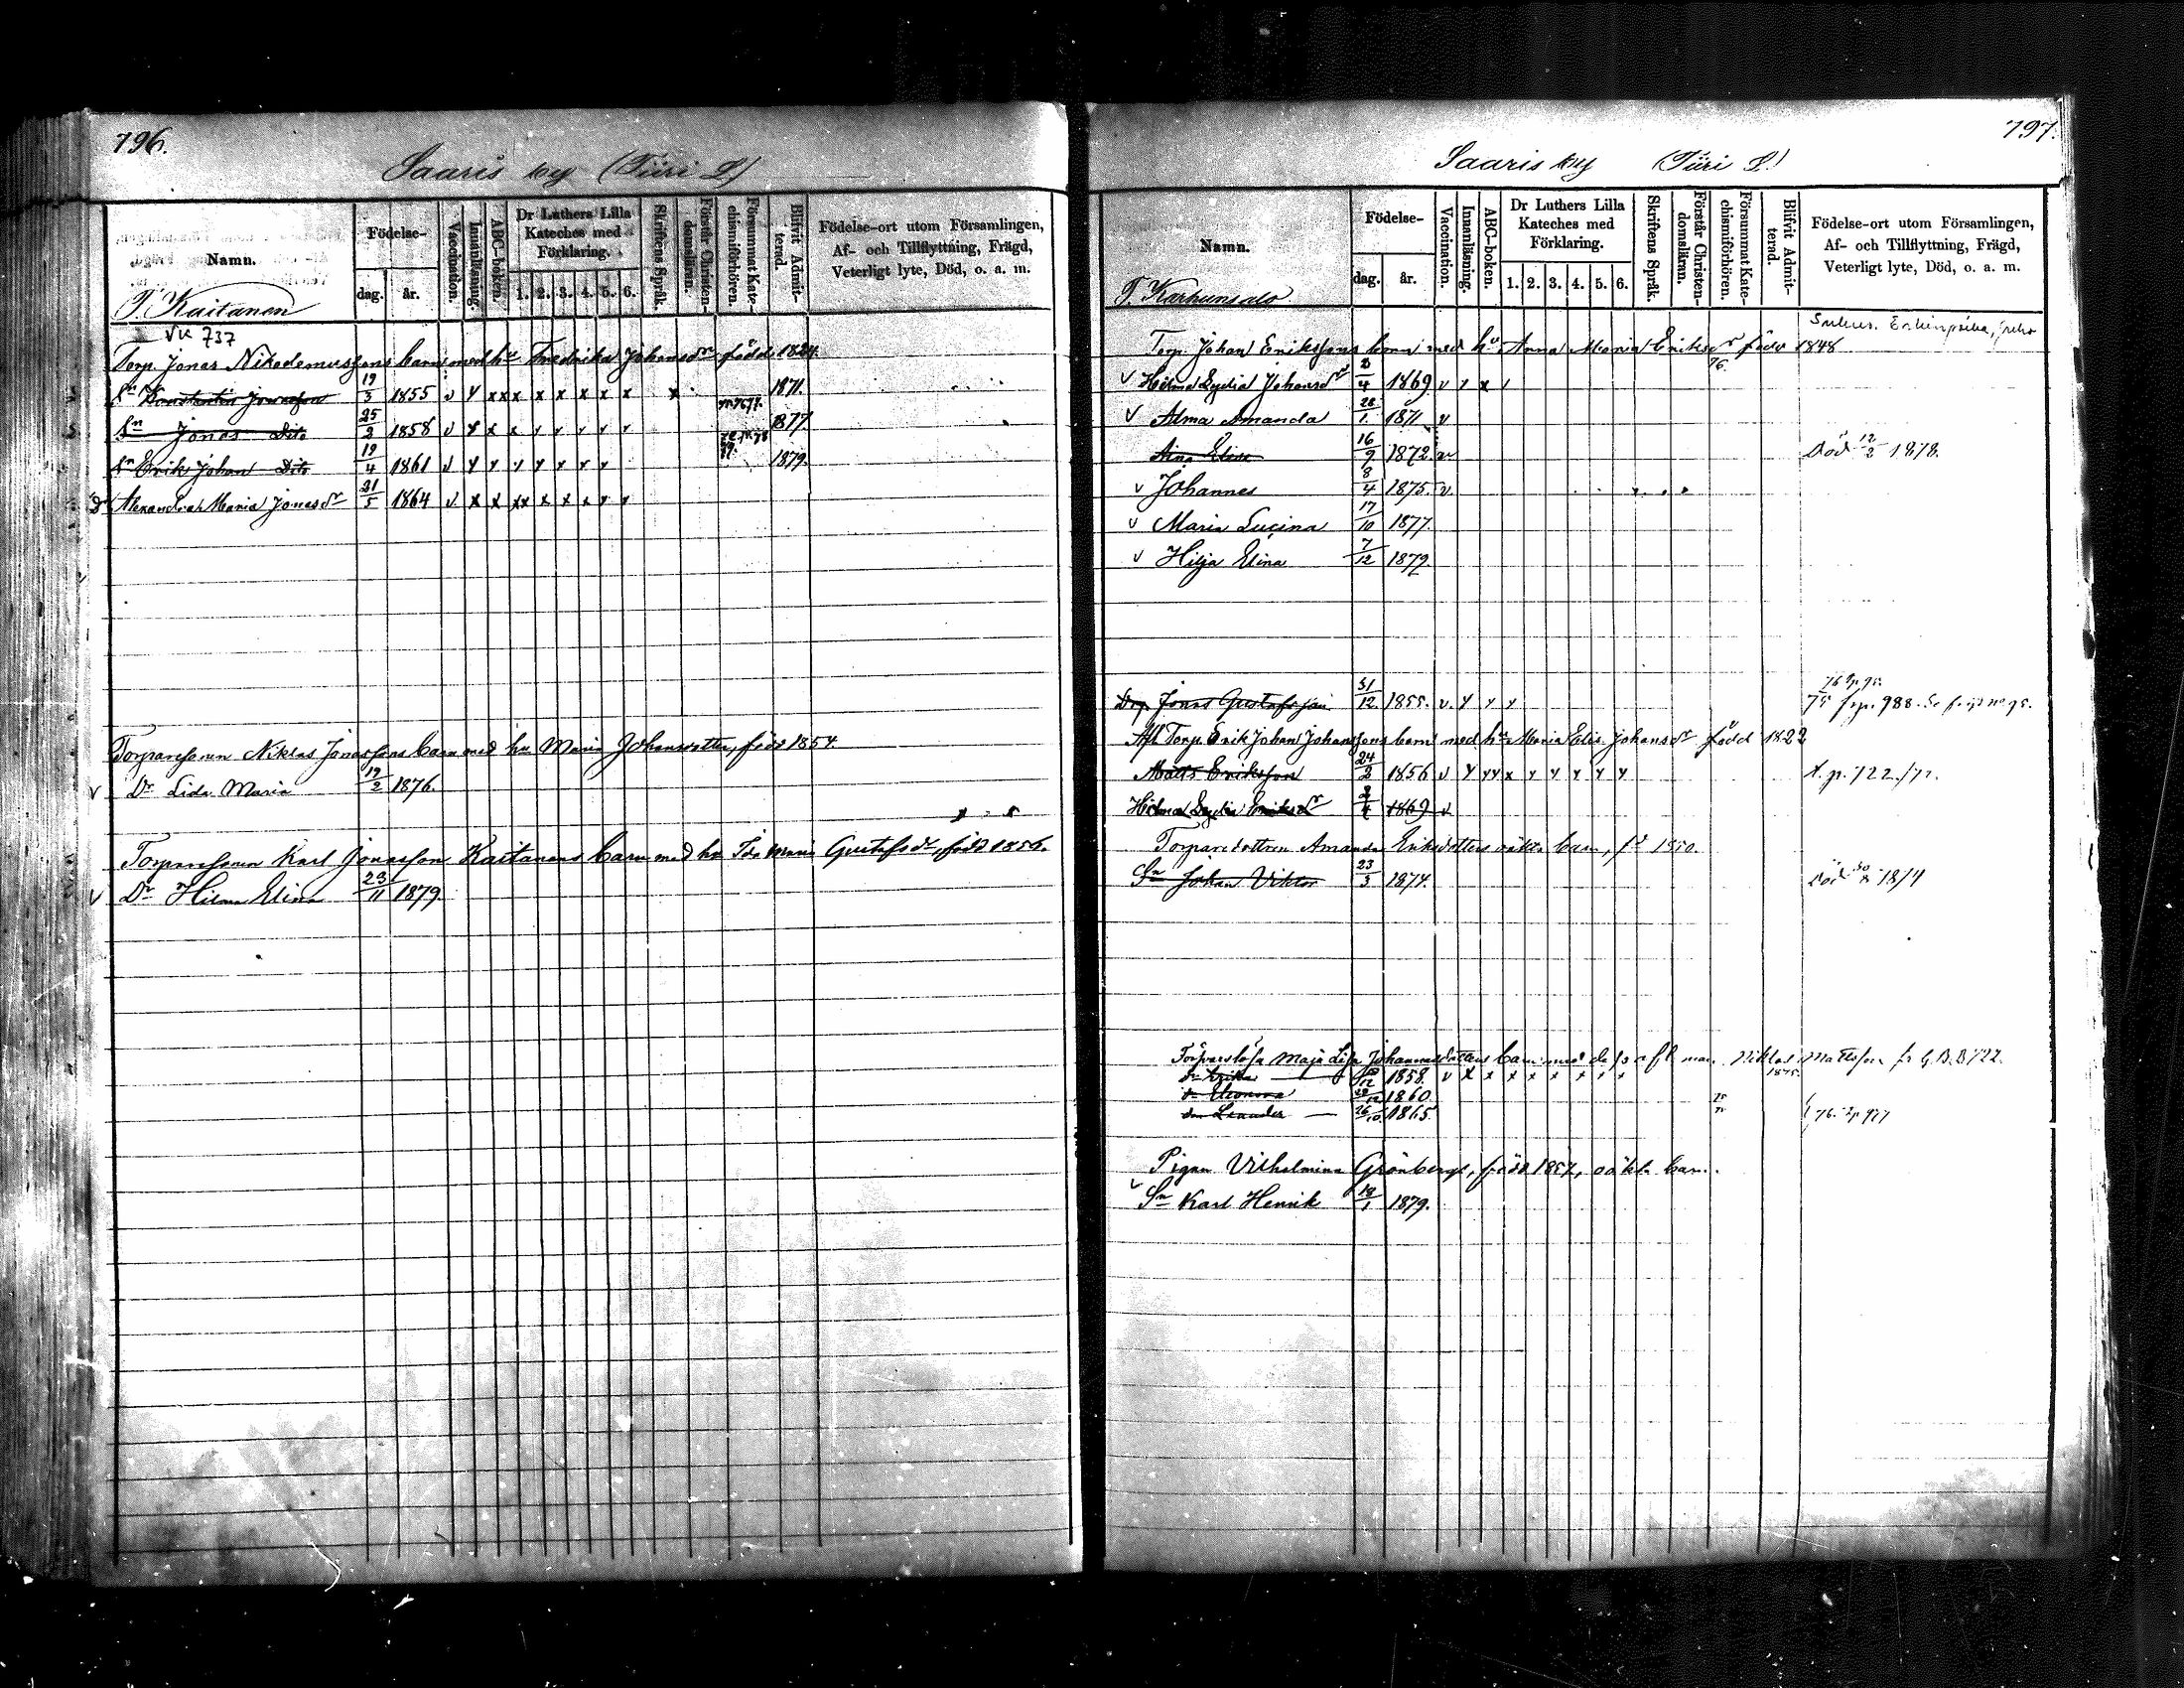 796.
Saaris by (Tiiri L)
Namn.
Födelse-
dag.
år.
Vaccination.
Innanläsning.
ABC-boken.
Dr Luthers Lilla Kateches med Förklaring.
1. 2. 3. 4. 5. 6.
Skriftens Språk.
Förstår Christendomsläran.
Försummat Katechismiförhören.
Blifvit Admitterad.
Födelse-ort utom Församlingen, Af- och Tillflyttning, Frägd, Veterligt lyte, Död, o. a. m.
T. Kaitanen
737
Torp. Jonas Nikodemussons barn med hu Fredrika Johansdr född 1824.
Sn Konstantin Jonasson 19/3 1855 v y x x x x x x x x x x 1871.
Sn Jonas Dito 25/2 1858 v y x x y y y y y 1877
Sn Erik Johan Dito 19/4 1861 v y y y y y y y 1879.
Dr Alexandra Maria Jonasdr 31/5 1864 v x x xx x x x y y
Torparesonen Niklas Jonassons barn med hu Maria Johansdotter, född 1854
v Dr Lida Maria 19/2 1876.
Torparesonen Karl Jonasson Kaitanens barn med hu Ida Maria Gustafsdr, född 1856.
v Dr Hilma Elina 23/11 1879.
797.
Saaris by (Tiiri L.)
Namn.
Födelse-
dag.
år.
Vaccination.
Innanläsning.
ABC-boken.
Dr Luthers Lilla Kateches med Förklaring.
1. 2. 3. 4. 5. 6.
Skriftens Språk.
Förstår Christendomsläran.
Försummat Katechismiförhören.
Blifvit Admitterad.
Födelse-ort utom Församlingen, Af- och Tillflyttning, Frägd, Veterligt lyte, Död, o. a. m.
T. Karhunsalo
Torp. Johan Erikssons barn med hu Anna Maria Eriksdr född 1848
v Hilma Lydia Johansdr 2/4 1869 v y x y 76.
v Alma Amanda 28/1. 1871 v
Aina Elise 16/9 1872. v Död 12/2 1878.
v Johannes 8/4 1875. v
v Maria Lucina 17/10 1877.
v Hilja Elina 7/12 1879.
Jonas Gustafsson 31/12 1855. v. y y y
Afl Torp. Erik Johan Johanssons barn med hu Maria Elis. Johansdr född 1822
Matts Eriksson 24/2 1856 v y yy x y y y y y
Hilma Lydia Eriksdr 2/4 1869 v
Torparedottren Amanda Eriksdotters oäkta barn, fd 1850.
Sn Johan Viktor 23/3 1874. Död 1874
Maja Lisa Johannesdotters barn med Niklas Mattsson
dr Erika 1858. v x x x x x x x x 1875.
dr Eleonora 1860
Leander 26/10 1865.
Pigan Vilhelmina Grönbergs, född 1857, oäkta barn.
v Sn Karl Henrik 19/1 1879.